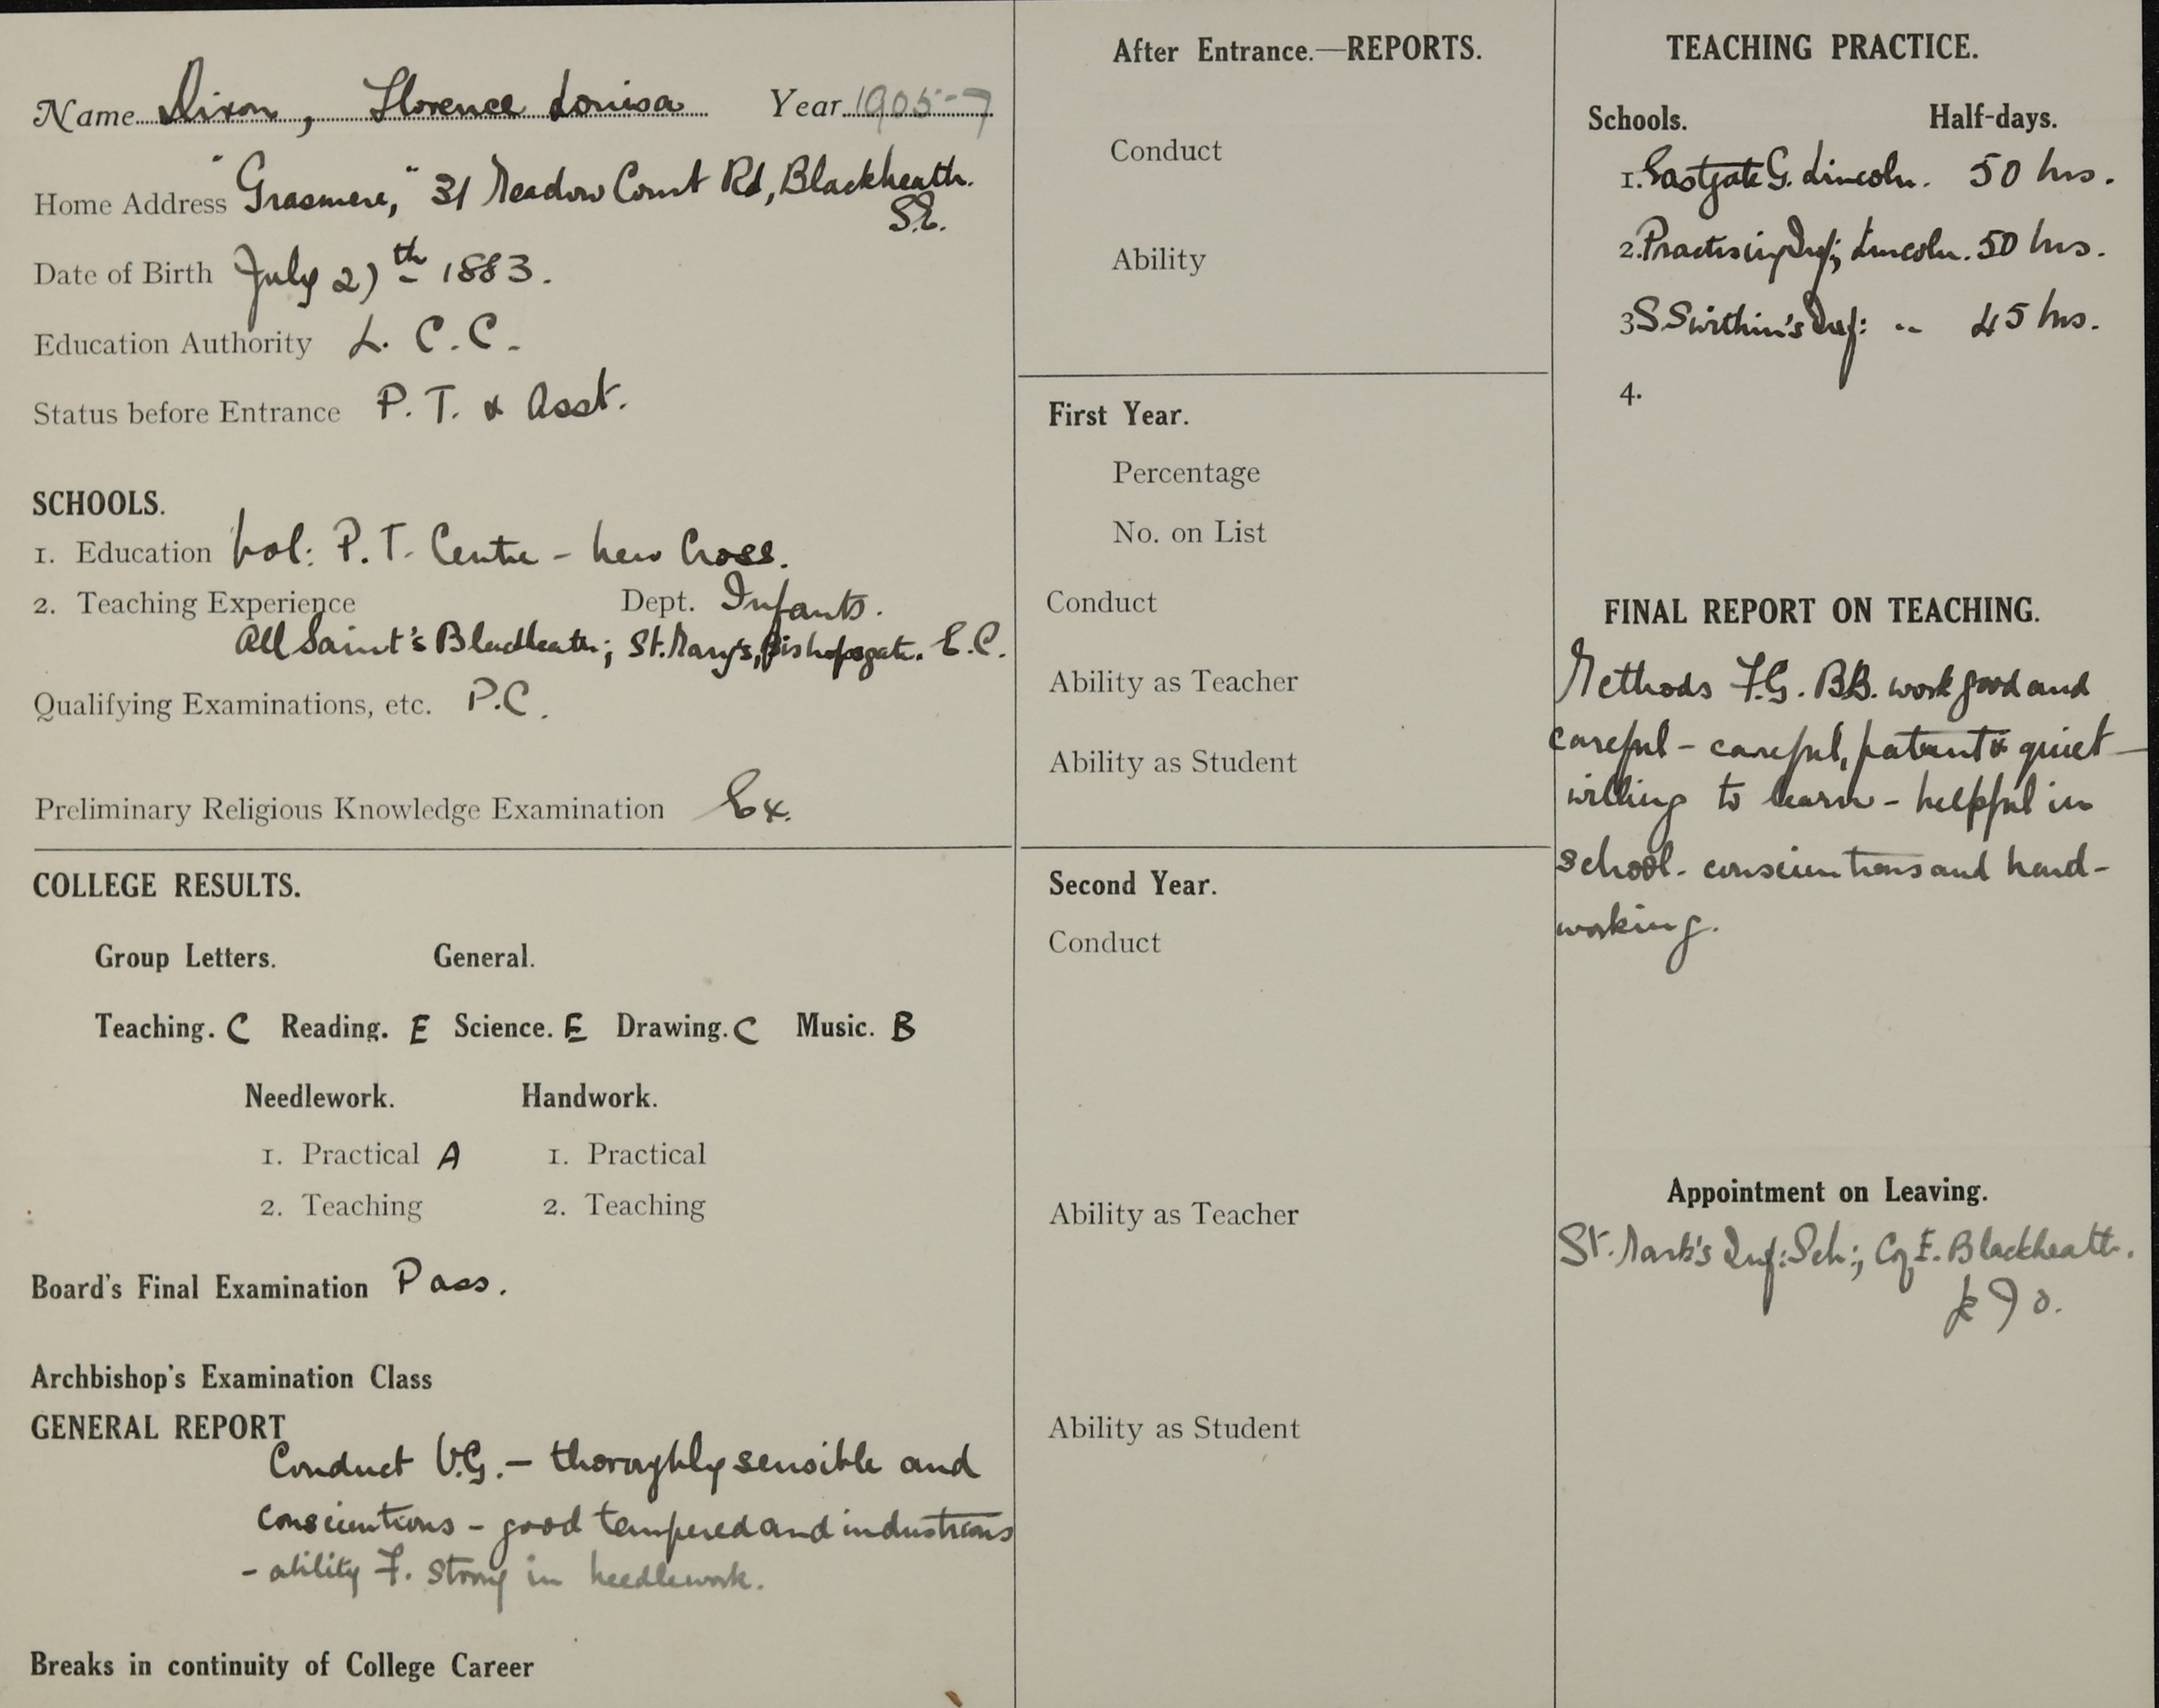 Name Dixon, Florence Louisa Year 1905-7
Home Address "Grasmere," 31 Meadow Court Rd, Blackheath.
S.E.
Date of Birth July 27th 1883.
Education Authority L. C. C.
Status before Entrance P. T. & Asst.
SCHOOLS.
1. Education Vol: P. T. Centre - New Cross.
2. Teaching Experience Dept. Infants.
All Saint's Blackheath; St. Mary's, Bishopsgate. E.C.
Qualifying Examinations, etc. P.C.
Preliminary Religious Knowledge Examination Ex.
COLLEGE RESULTS.
Group Letters. General.
Teaching. C Reading. E Science. E Drawing. C Music. B
Needlework. Handwork.
1. Practical A 1. Practical
2. Teaching 2. Teaching
Board's Final Examination Pass.
Archbishop's Examination Class
GENERAL REPORT
Conduct V.G. - thoroughly sensible and
conscientious - good tempered and industrious
- ability F. strong in needlework.
Breaks in continuity of College Career
After Entrance.—REPORTS.
Conduct
Ability
First Year.
Percentage
No. on List
Conduct
Ability as Teacher
Ability as Student
Second Year.
Conduct
Ability as Teacher
Ability as Student
TEACHING PRACTICE.
Schools. Half-days.
1. Eastgate G. Lincoln. 50 hrs.
2. Practising Inf; Lincoln. 50 hrs.
3 S. Swithin's Inf: " 45 hrs.
4.
FINAL REPORT ON TEACHING.
Methods F.G. BB. work good and
careful - careful, patient & quiet -
willing to learn - helpful in
school - conscientious and hard-
working.
Appointment on Leaving.
St. Mark's Inf: Sch:; C of E. Blackheath.
£70.